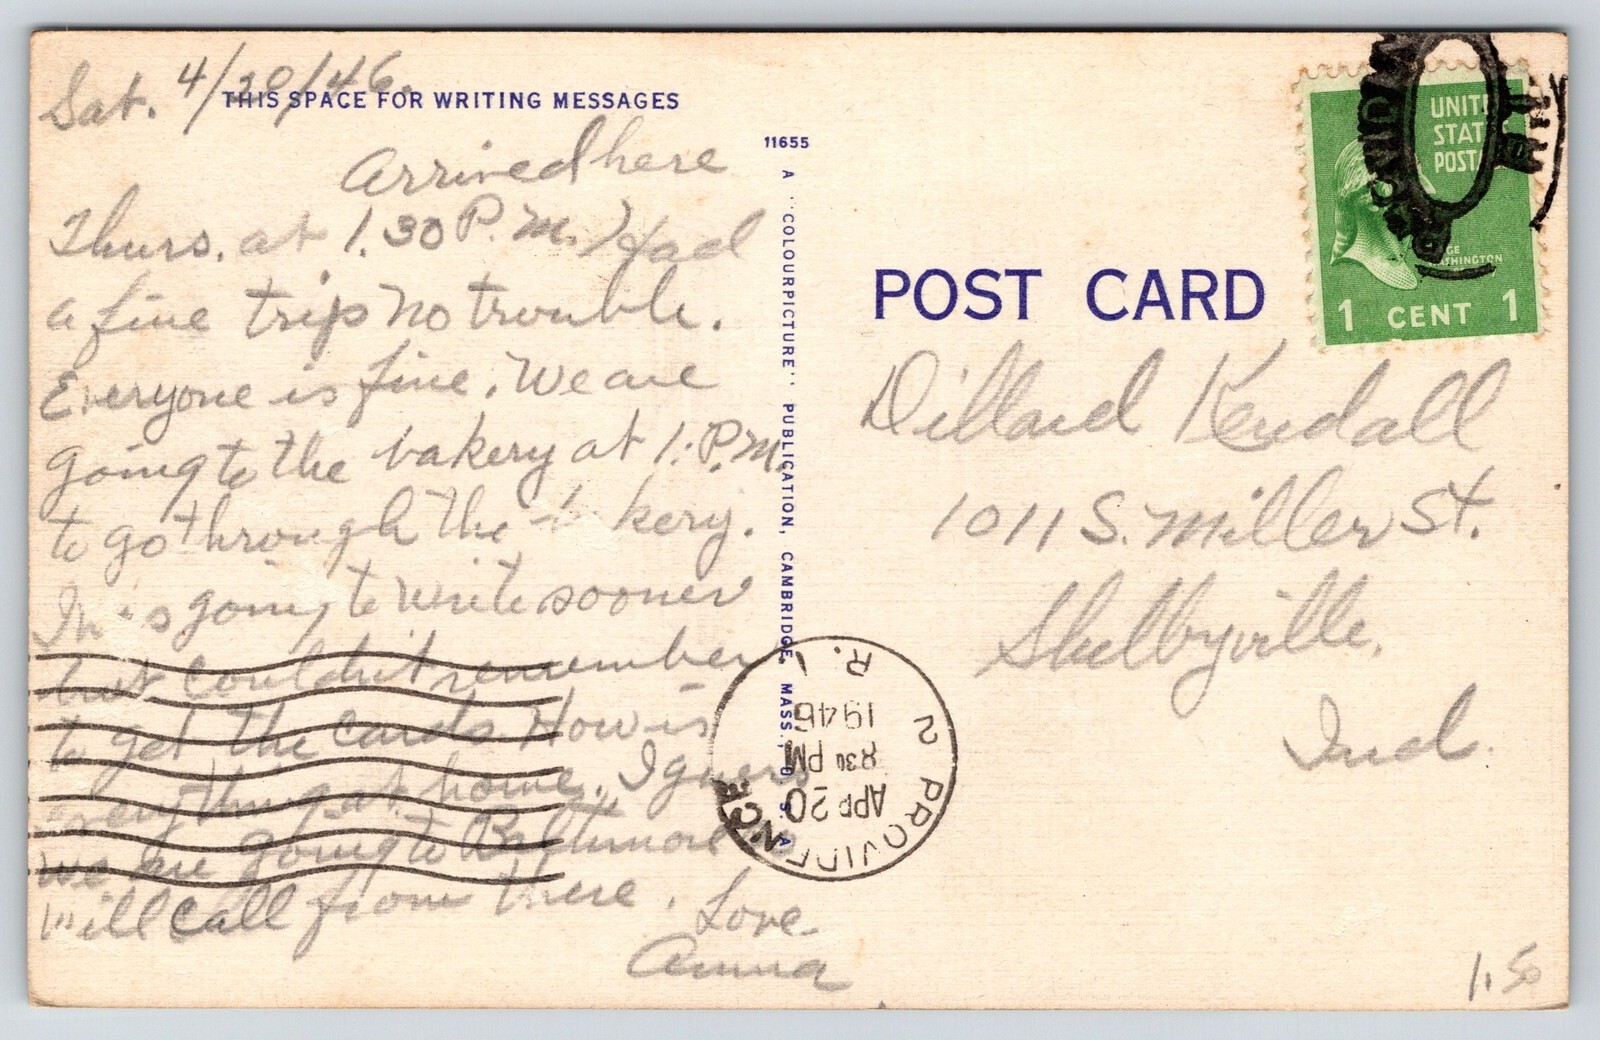 Sat. 4/20/46.
THIS SPACE FOR WRITING MESSAGES
Arrived here
Thurs. at 1.30 P.M. Had
a fine trip no trouble.
Everyone is fine. We are
going to the bakery at 1:P.M.
to go through the bakery.
going to write sooner
but couldn't remember
to get the cards. How is
everything at home. I guess
we are going to Baltimore so
will call from there.
Love.
Anna
11655
A "COLOURPICTURE" PUBLICATION, CAMBRIDGE, MASS., U. S. A.
POST CARD
UNITED
STATES
POSTAGE
GEORGE
WASHINGTON
1 CENT 1
PROVIDENCE
R. I.
PROVIDENCE 2
R. I.
APR 20
830 PM
1946
Dillard Kendall
1011 S. Miller St.
Shelbyville.
Ind.
1.50